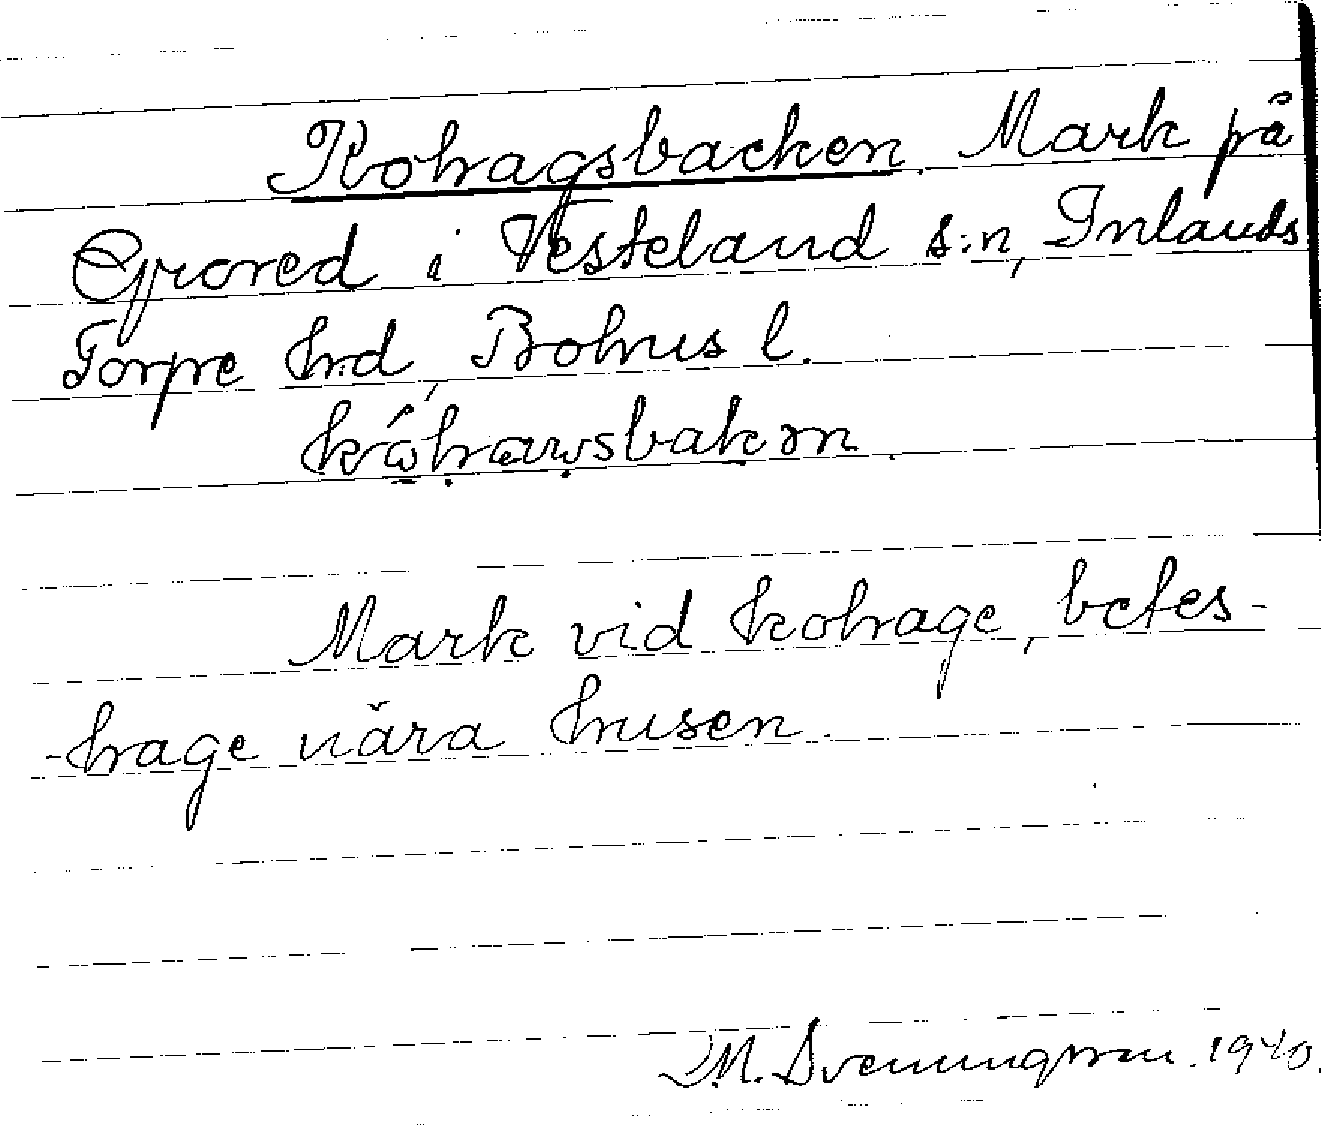 Kohagsbacken Mark på
Grored i Vesteland s:n, Inlands
Torpe hd, Bohus l.
Mark vid kohage, betes-
-hage nära husen.
M. 1940.